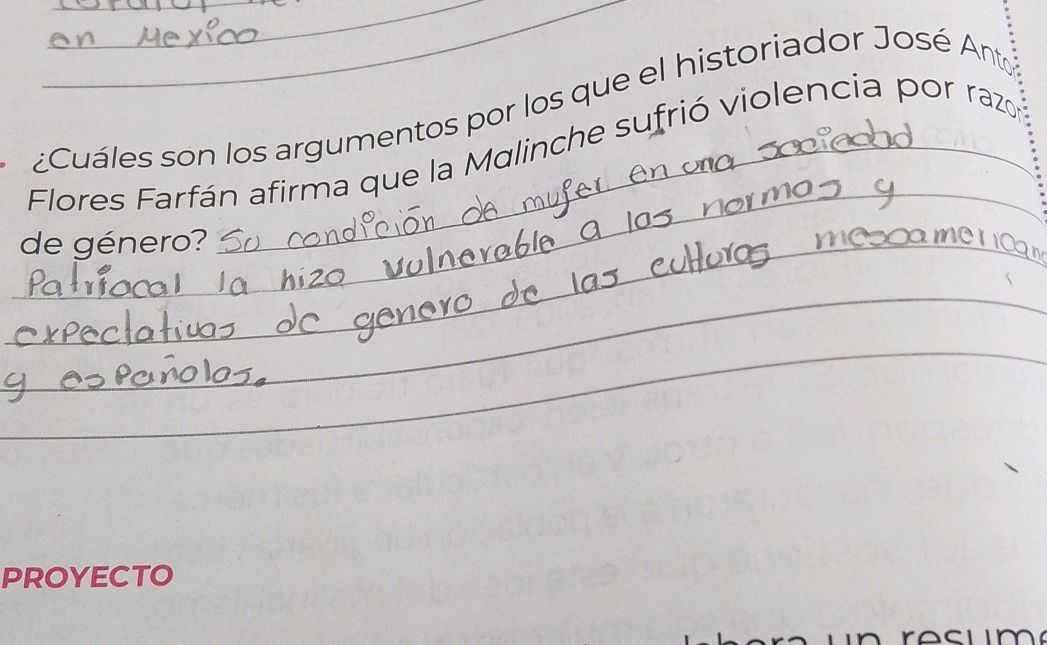 en Mexico
¿Cuáles son los argumentos por los que el historiador José Anto
Flores Farfán afirma que la Malinche sufrió violencia por razon
de género? Su condición de mujer en una sociedad
Patriacal la hizo vulnerable a las normas y
expectativas de genero de las culturas mesoamerican
y españolas.
PROYECTO
un resume